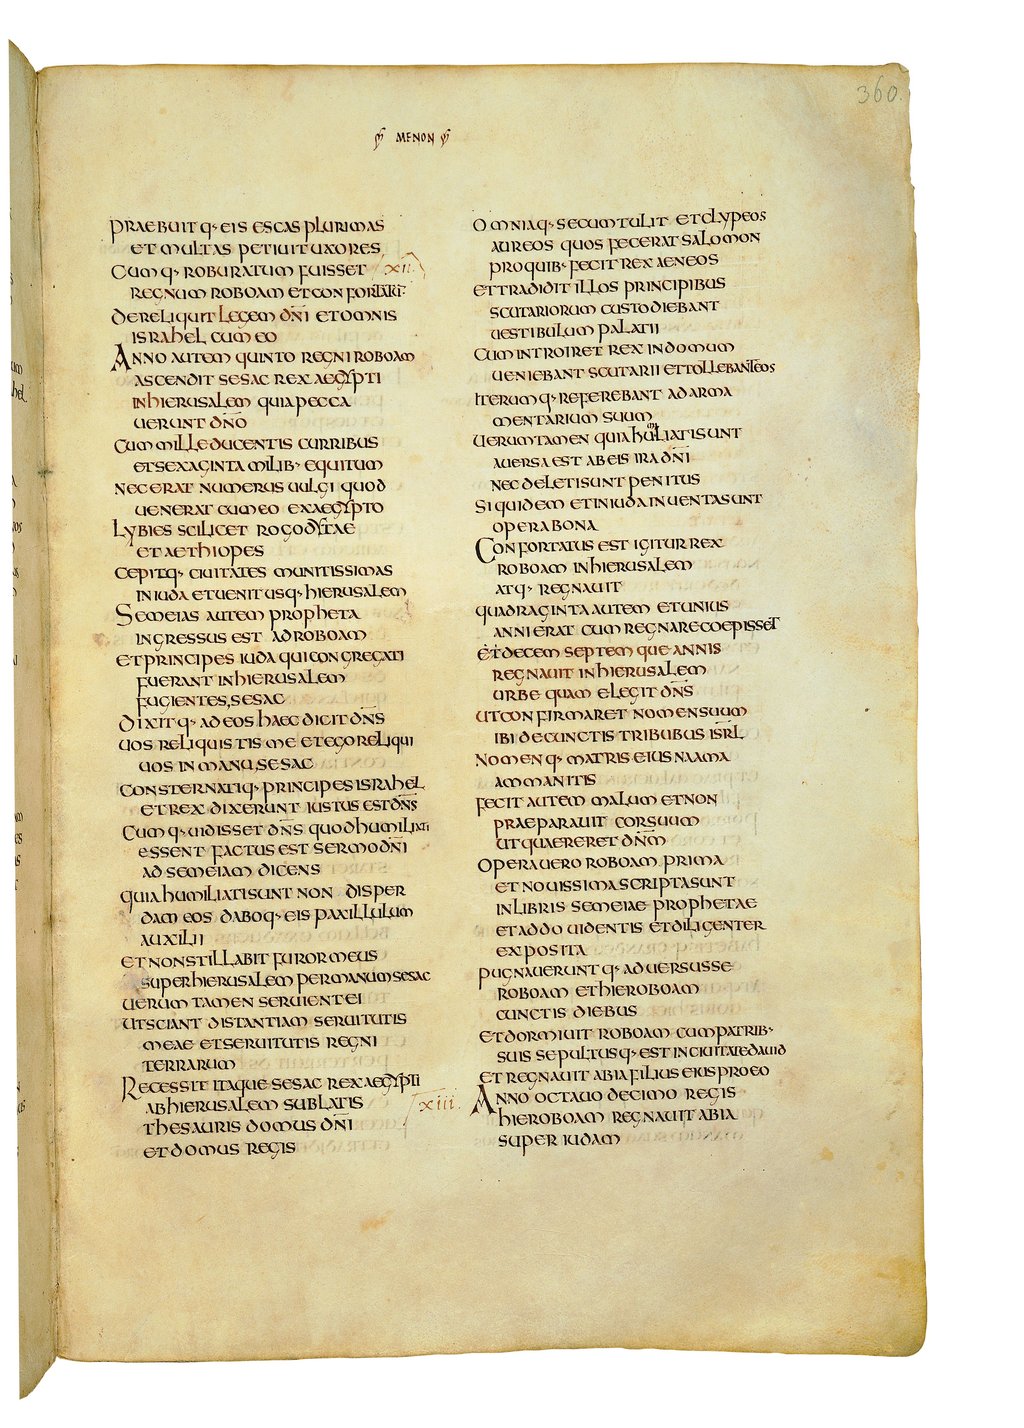 360.
MENON
PRAEBUIT Q· EIS ESCAS PLURIMAS
ET MULTAS PETIUIT UXORES
CUM Q· ROBURATUM FUISSET XII
REGNUM ROBOAM ET CONFORTATŪ·
DERELIQUIT LEGEM DN̄I ET OMNIS
ISRAHEL CUM EO
ANNO AUTEM QUINTO REGNI ROBOAM
ASCENDIT SESAC REX AEGYPTI
IN HIERUSALEM QUIA PECCA
UERUNT DN̄O
CUM MILLE DUCENTIS CURRIBUS
ET SEXAGINTA MILIB· EQUITUM
NEC ERAT NUMERUS UULGI QUOD
UENERAT CUM EO EX AEGYPTO
LYBIES SCILICET ROGODYTAE
ET AETHIOPES
CEPITQ· CIUITATES MUNITISSIMAS
IN IUDA ET UENIT USQ· HIERUSALEM
SEMEIAS AUTEM PROPHETA
INGRESSUS EST AD ROBOAM
ET PRINCIPES IUDA QUI CONGREGATI
FUERANT IN HIERUSALEM
FUGIENTES, SESAC
DIXIT Q· AD EOS HAEC DICIT DN̄S
UOS RELIQUISTIS ME ET EGO RELIQUI
UOS IN MANU, SESAC
CONSTERNATIQ· PRINCIPES ISRAHEL
ET REX DIXERUNT IUSTUS EST DN̄S
CUM Q· UIDISSET DN̄S QUOD HUMILIATI
ESSENT FACTUS EST SERMO DN̄I
AD SEMEIAM DICENS
QUIA HUMILIATI SUNT NON DISPER
DAM EOS DABOQ· EIS PAXILLULUM
AUXILII
ET NON STILLABIT FUROR MEUS
SUPER HIERUSALEM PER MANUM SESAC
UERUM TAMEN SERUIENT EI
UT SCIANT DISTANTIAM SERUITUTIS
MEAE ET SERUITUTIS REGNI
TERRARUM
RECESSIT ITAQUE SESAC REX AEGYPTI
AB HIERUSALEM SUBLATIS
THESAURIS DOMUS DN̄I
ET DOMUS REGIS
OMNIAQ· SECUM TULIT ET CLYPEOS
AUREOS QUOS FECERAT SALOMON
PRO QUIB· FECIT REX AENEOS
ET TRADIDIT ILLOS PRINCIPIBUS
SCUTARIORUM CUSTODIEBANT
UESTIBULUM PALATII
CUM INTROIRET REX IN DOMUM
UENIEBANT SCUTARII ET TOLLEBANT EOS
ITERUM Q· REFEREBANT AD ARMA
MENTARIUM SUUM
UERUM TAMEN QUIA HUMILIATI SUNT
AUERSA EST AB EIS IRA DN̄I
NEC DELETI SUNT PENITUS
SI QUIDEM ET IN IUDA INUENTA SUNT
OPERA BONA
CONFORTATUS EST IGITUR REX
ROBOAM IN HIERUSALEM
ATQ· REGNAUIT
QUADRAGINTA AUTEM ET UNIUS
ANNI ERAT CUM REGNARE COEPISSET
ET DECEM SEPTEM QUE ANNIS
REGNAUIT IN HIERUSALEM
URBE QUAM ELEGIT DN̄S
UT CONFIRMARET NOMEN SUUM
IBI DE CUNCTIS TRIBUBUS ISR̄L
NOMEN Q· MATRIS EIUS NAAMA
AMMANITIS
FECIT AUTEM MALUM ET NON
PRAEPARAUIT COR SUUM
UT QUAERERET DN̄M
OPERA UERO ROBOAM PRIMA
ET NOUISSIMA SCRIPTA SUNT
IN LIBRIS SEMEIAE PROPHETAE
ET ADDO UIDENTIS ET DILIGENTER
EXPOSITA
PUGNAUERUNT Q· ADUERSUS SE
ROBOAM ET HIEROBOAM
CUNCTIS DIEBUS
ET DORMIUIT ROBOAM CUM PATRIB·
SUIS SEPULTUSQ· EST IN CIUITATE DAUID
ET REGNAUIT ABIA FILIUS EIUS PRO EO
XIII. ANNO OCTAUO DECIMO REGIS
HIEROBOAM REGNAUIT ABIA
SUPER IUDAM